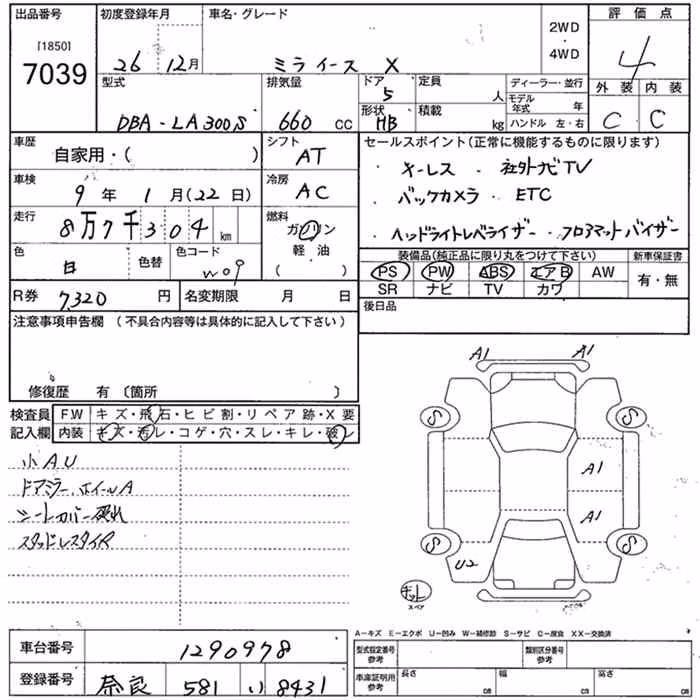 出品番号
[1850]
7039
初度登録年月
26 12月
車名・グレード
ミライース X
2WD
・
4WD
評価点
4
型式
DBA-LA300S
排気量
660 CC
ドア
5
定員
人
形状
HB
積載
kg
ディーラー・並行
モデル年式 年
ハンドル 左・右
外装 内装
C C
車歴
自家用・( )
シフト
AT
車検
9年 1月(22日)
冷房
AC
走行
8万7千304 km
燃料
ガソリン
軽油
( )
色
白
色替
色コード
W09
R券 7,320 円
名変期限 月 日
セールスポイント(正常に機能するものに限ります)
・キーレス ・社外ナビTV
・バックカメラ ・ETC
・ヘッドライトレベライザー ・フロアマットバイザー
装備品(純正品に限り丸をつけて下さい)
新車保証書
PS PW ABS エアB AW
SR ナビ TV カワ
有・無
後日品
注意事項申告欄 (不具合内容等は具体的に記入して下さい)
修復歴 有 〔箇所 〕
検査員記入欄
F.W キズ・飛石・ヒビ割・リペア跡・X要
内装 キズ・汚レ・コゲ・穴・スレ・キレ・破レ
小AU
ドアミラー、ホイールA
シートカバー破れ
スタッドレスタイヤ
A1 A1
S S
A1
A1
S S
U2
キット
スペア
A－キズ E－エクボ U－凹み W－補修跡 S－サビ C－腐食 XX－交換済
車台番号 1290978
登録番号 奈良 581 い 8431
型式指定番号
参考
類別区分番号
参考
車庫証明用
参考
長さ cm
幅 cm
高さ cm